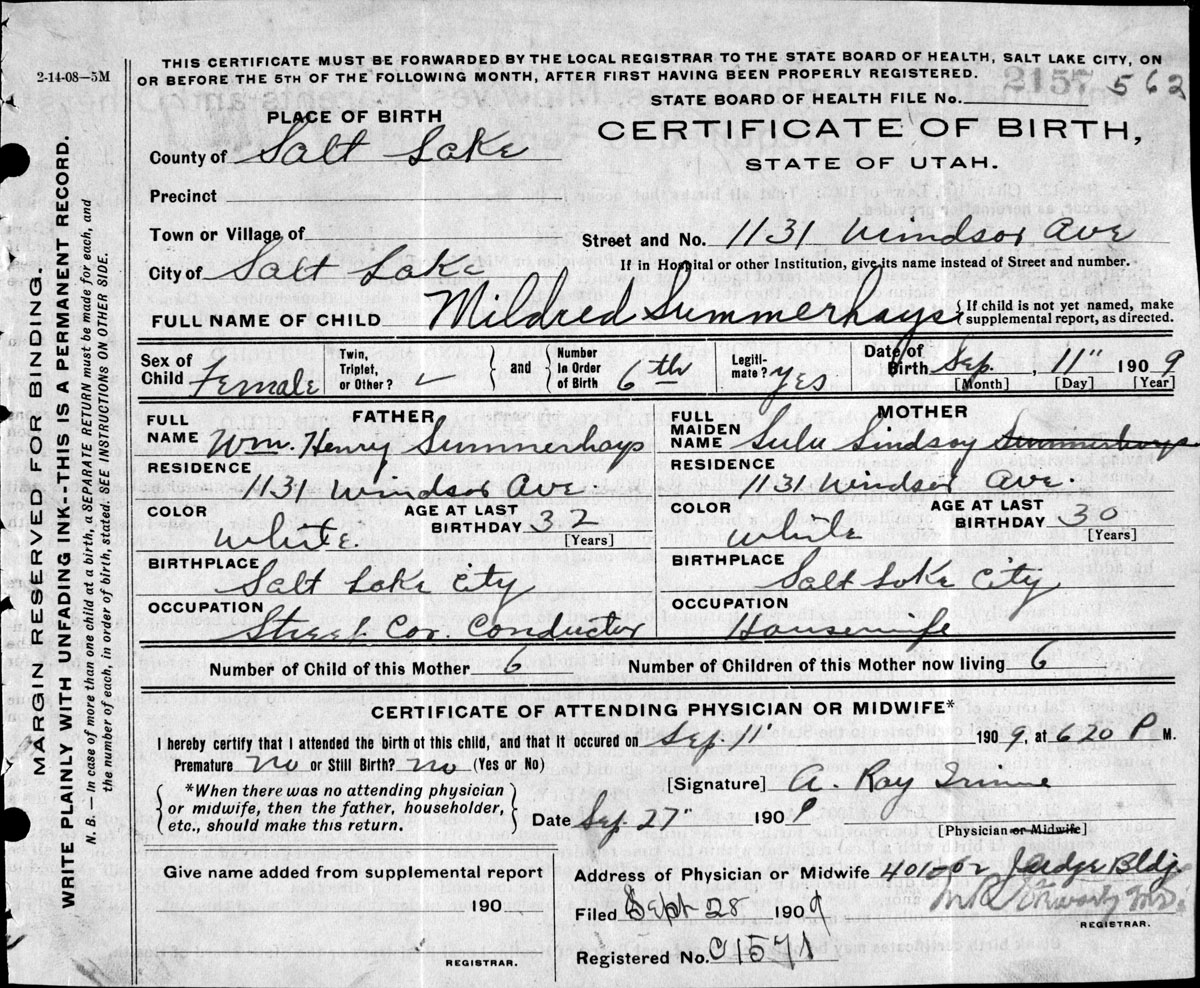 2-14-08—5M
THIS CERTIFICATE MUST BE FORWARDED BY THE LOCAL REGISTRAR TO THE STATE BOARD OF HEALTH, SALT LAKE CITY, ON
OR BEFORE THE 5TH OF THE FOLLOWING MONTH, AFTER FIRST HAVING BEEN PROPERLY REGISTERED.
2157 562
STATE BOARD OF HEALTH FILE No.
PLACE OF BIRTH
CERTIFICATE OF BIRTH,
STATE OF UTAH.
County of Salt Lake
Precinct
Town or Village of
Street and No. 1131 Windsor Ave
City of Salt Lake
If in Hospital or other Institution, give its name instead of Street and number.
FULL NAME OF CHILD Mildred Summerhays {If child is not yet named, make
supplemental report, as directed.
Sex of Child Female
Twin, Triplet, or Other? ✓
and Number In Order of Birth 6th
Legitimate? yes
Date of Birth Sep. 11" 1909
[Month] [Day] [Year]
FATHER
FULL NAME Wm. Henry Summerhays
RESIDENCE
1131 Windsor Ave.
COLOR White.
AGE AT LAST BIRTHDAY 32
[Years]
BIRTHPLACE
Salt Lake City
OCCUPATION
Street Car Conductor
MOTHER
FULL MAIDEN NAME Lulu Lindsay Summerhays
RESIDENCE
1131 Windsor Ave.
COLOR White
AGE AT LAST BIRTHDAY 30
[Years]
BIRTHPLACE
Salt Lake City
OCCUPATION
Housewife
Number of Child of this Mother 6 Number of Children of this Mother now living 6
CERTIFICATE OF ATTENDING PHYSICIAN OR MIDWIFE*
I hereby certify that I attended the birth of this child, and that it occured on Sep. 11" 1909, at 6 20 P M.
Premature no or Still Birth? no (Yes or No)
*When there was no attending physician
or midwife, then the father, householder,
etc., should make this return.
[Signature] A. Ray
Date Sep. 27" 1909
[Physician or Midwife]
Give name added from supplemental report
190
REGISTRAR.
Address of Physician or Midwife 401-02 Judge Bldg
Filed Sept 28 1909
REGISTRAR.
Registered No. C1571
MARGIN RESERVED FOR BINDING.
WRITE PLAINLY WITH UNFADING INK--THIS IS A PERMANENT RECORD.
N. B.— In case of more than one child at a birth, a SEPARATE RETURN must be made for each, and
the number of each, in order of birth, stated. SEE INSTRUCTIONS ON OTHER SIDE.